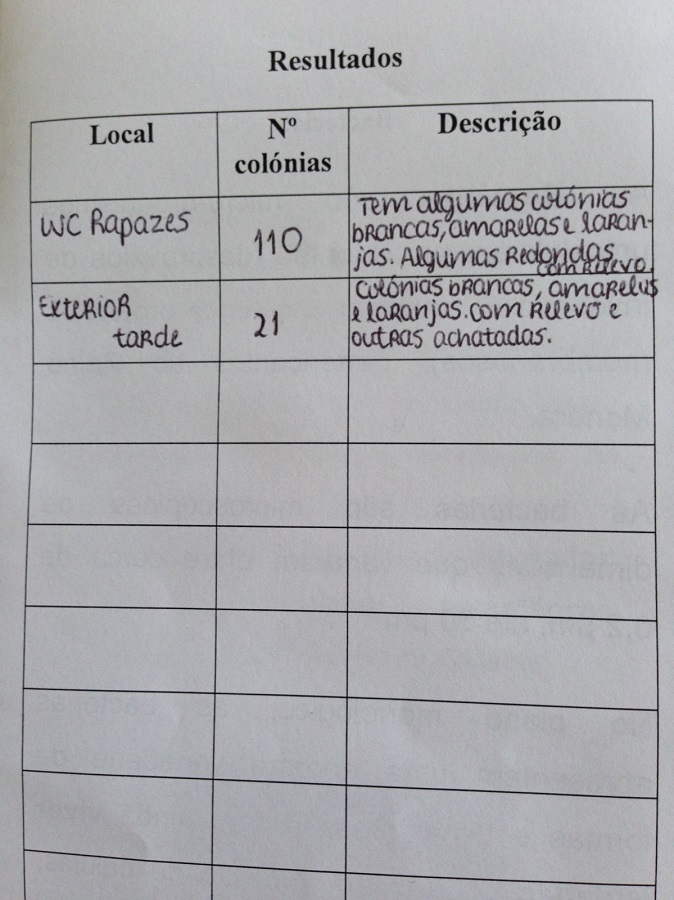 Resultados
Local
Nº
colónias
Descrição
WC Rapazes
110
Tem algumas colónias
brancas, amarelas e laran-
jas. Algumas Redondas
com relevo
Exterior
tarde
21
Colónias brancas, amarelas
e laranjas. com Relevo e
outras achatadas.